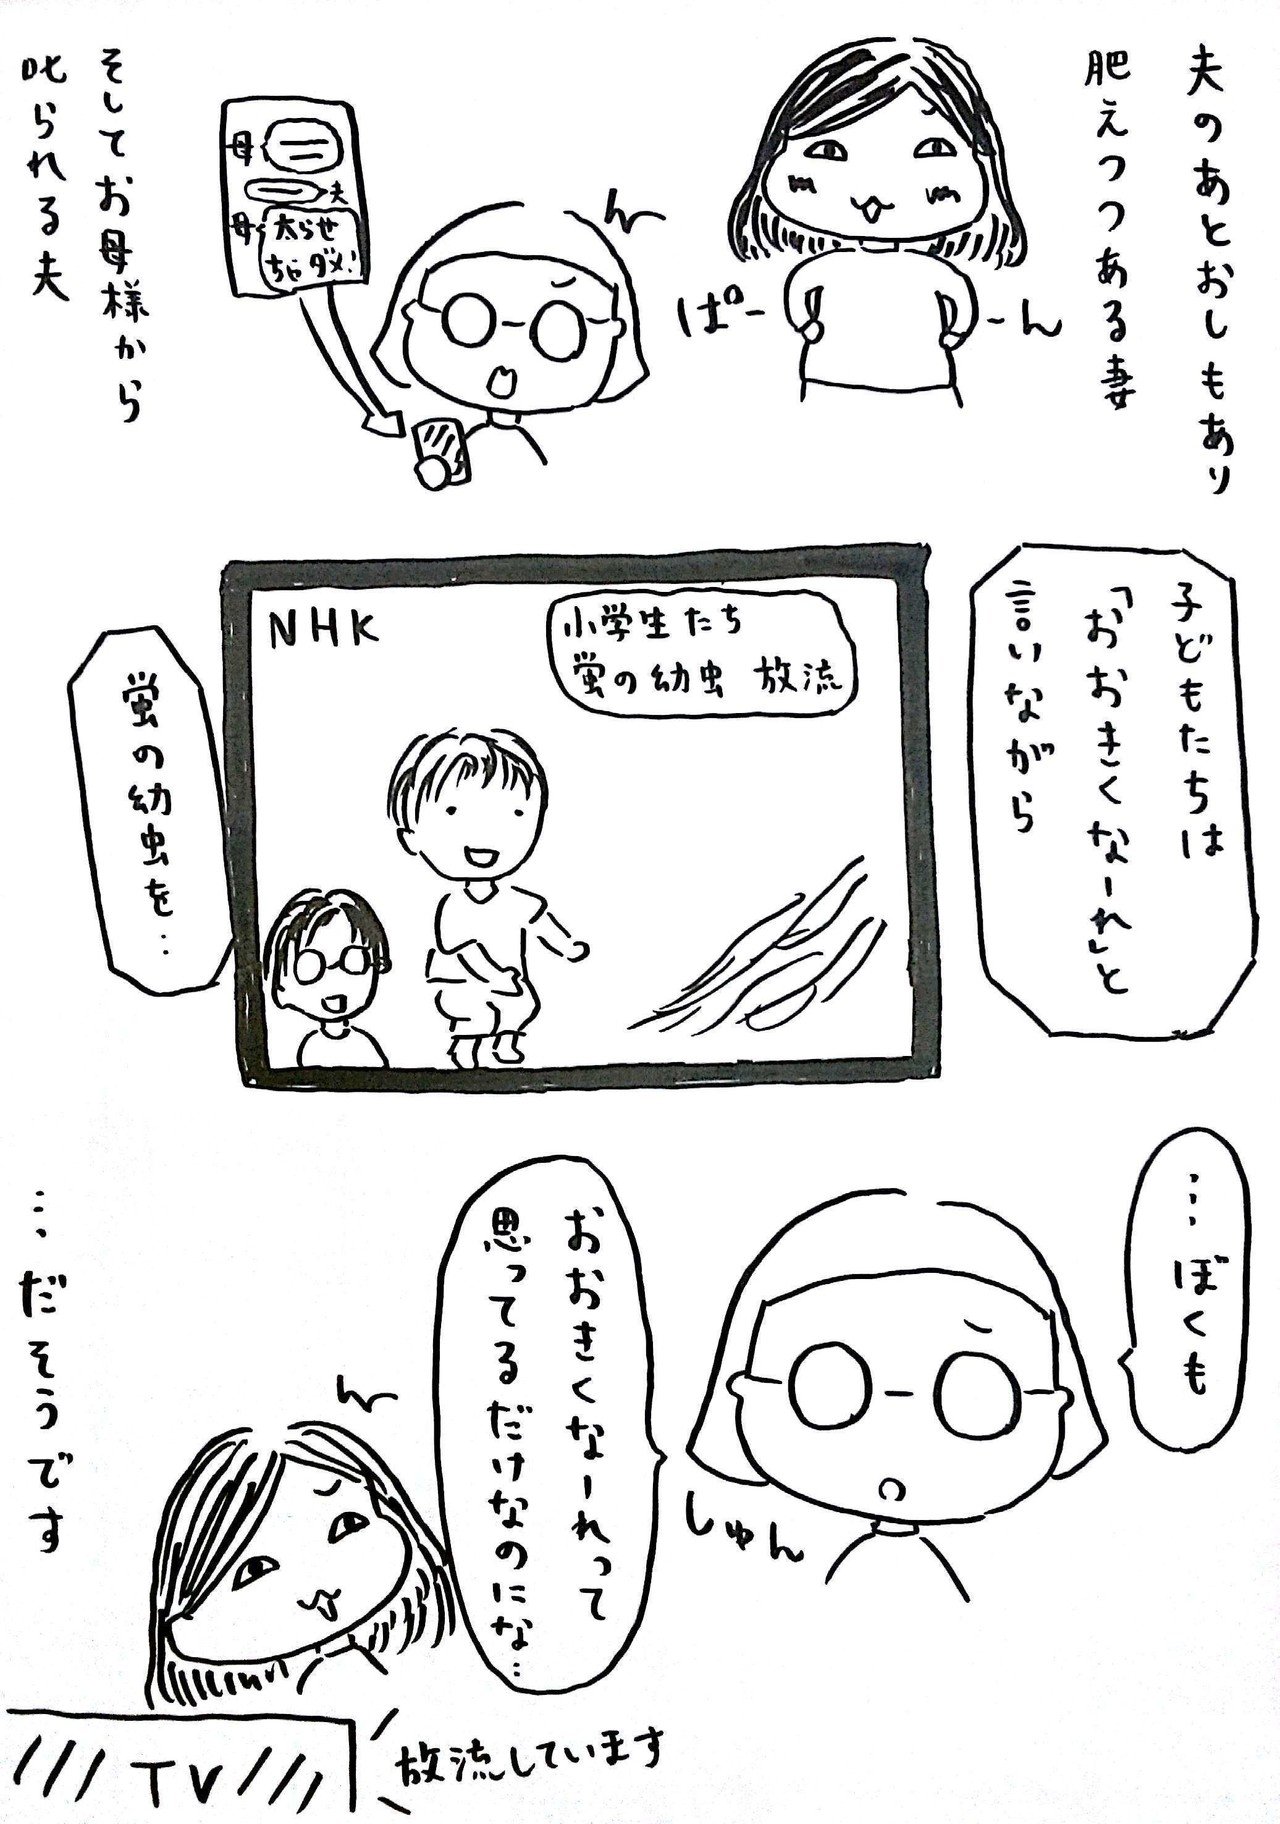 夫のあとおしもあり
肥えつつある妻
ぱーーん
母
夫
母
太らせ
ちゃダメ!
そしてお母様から
叱られる夫
子どもたちは
「おおきくなーれ」と
言いながら
NHK
小学生たち
蛍の幼虫 放流
蛍の幼虫を…
…ぼくも
しゅん
おおきくなーれって
思ってるだけなのにな…
放流しています
TV
…だそうです